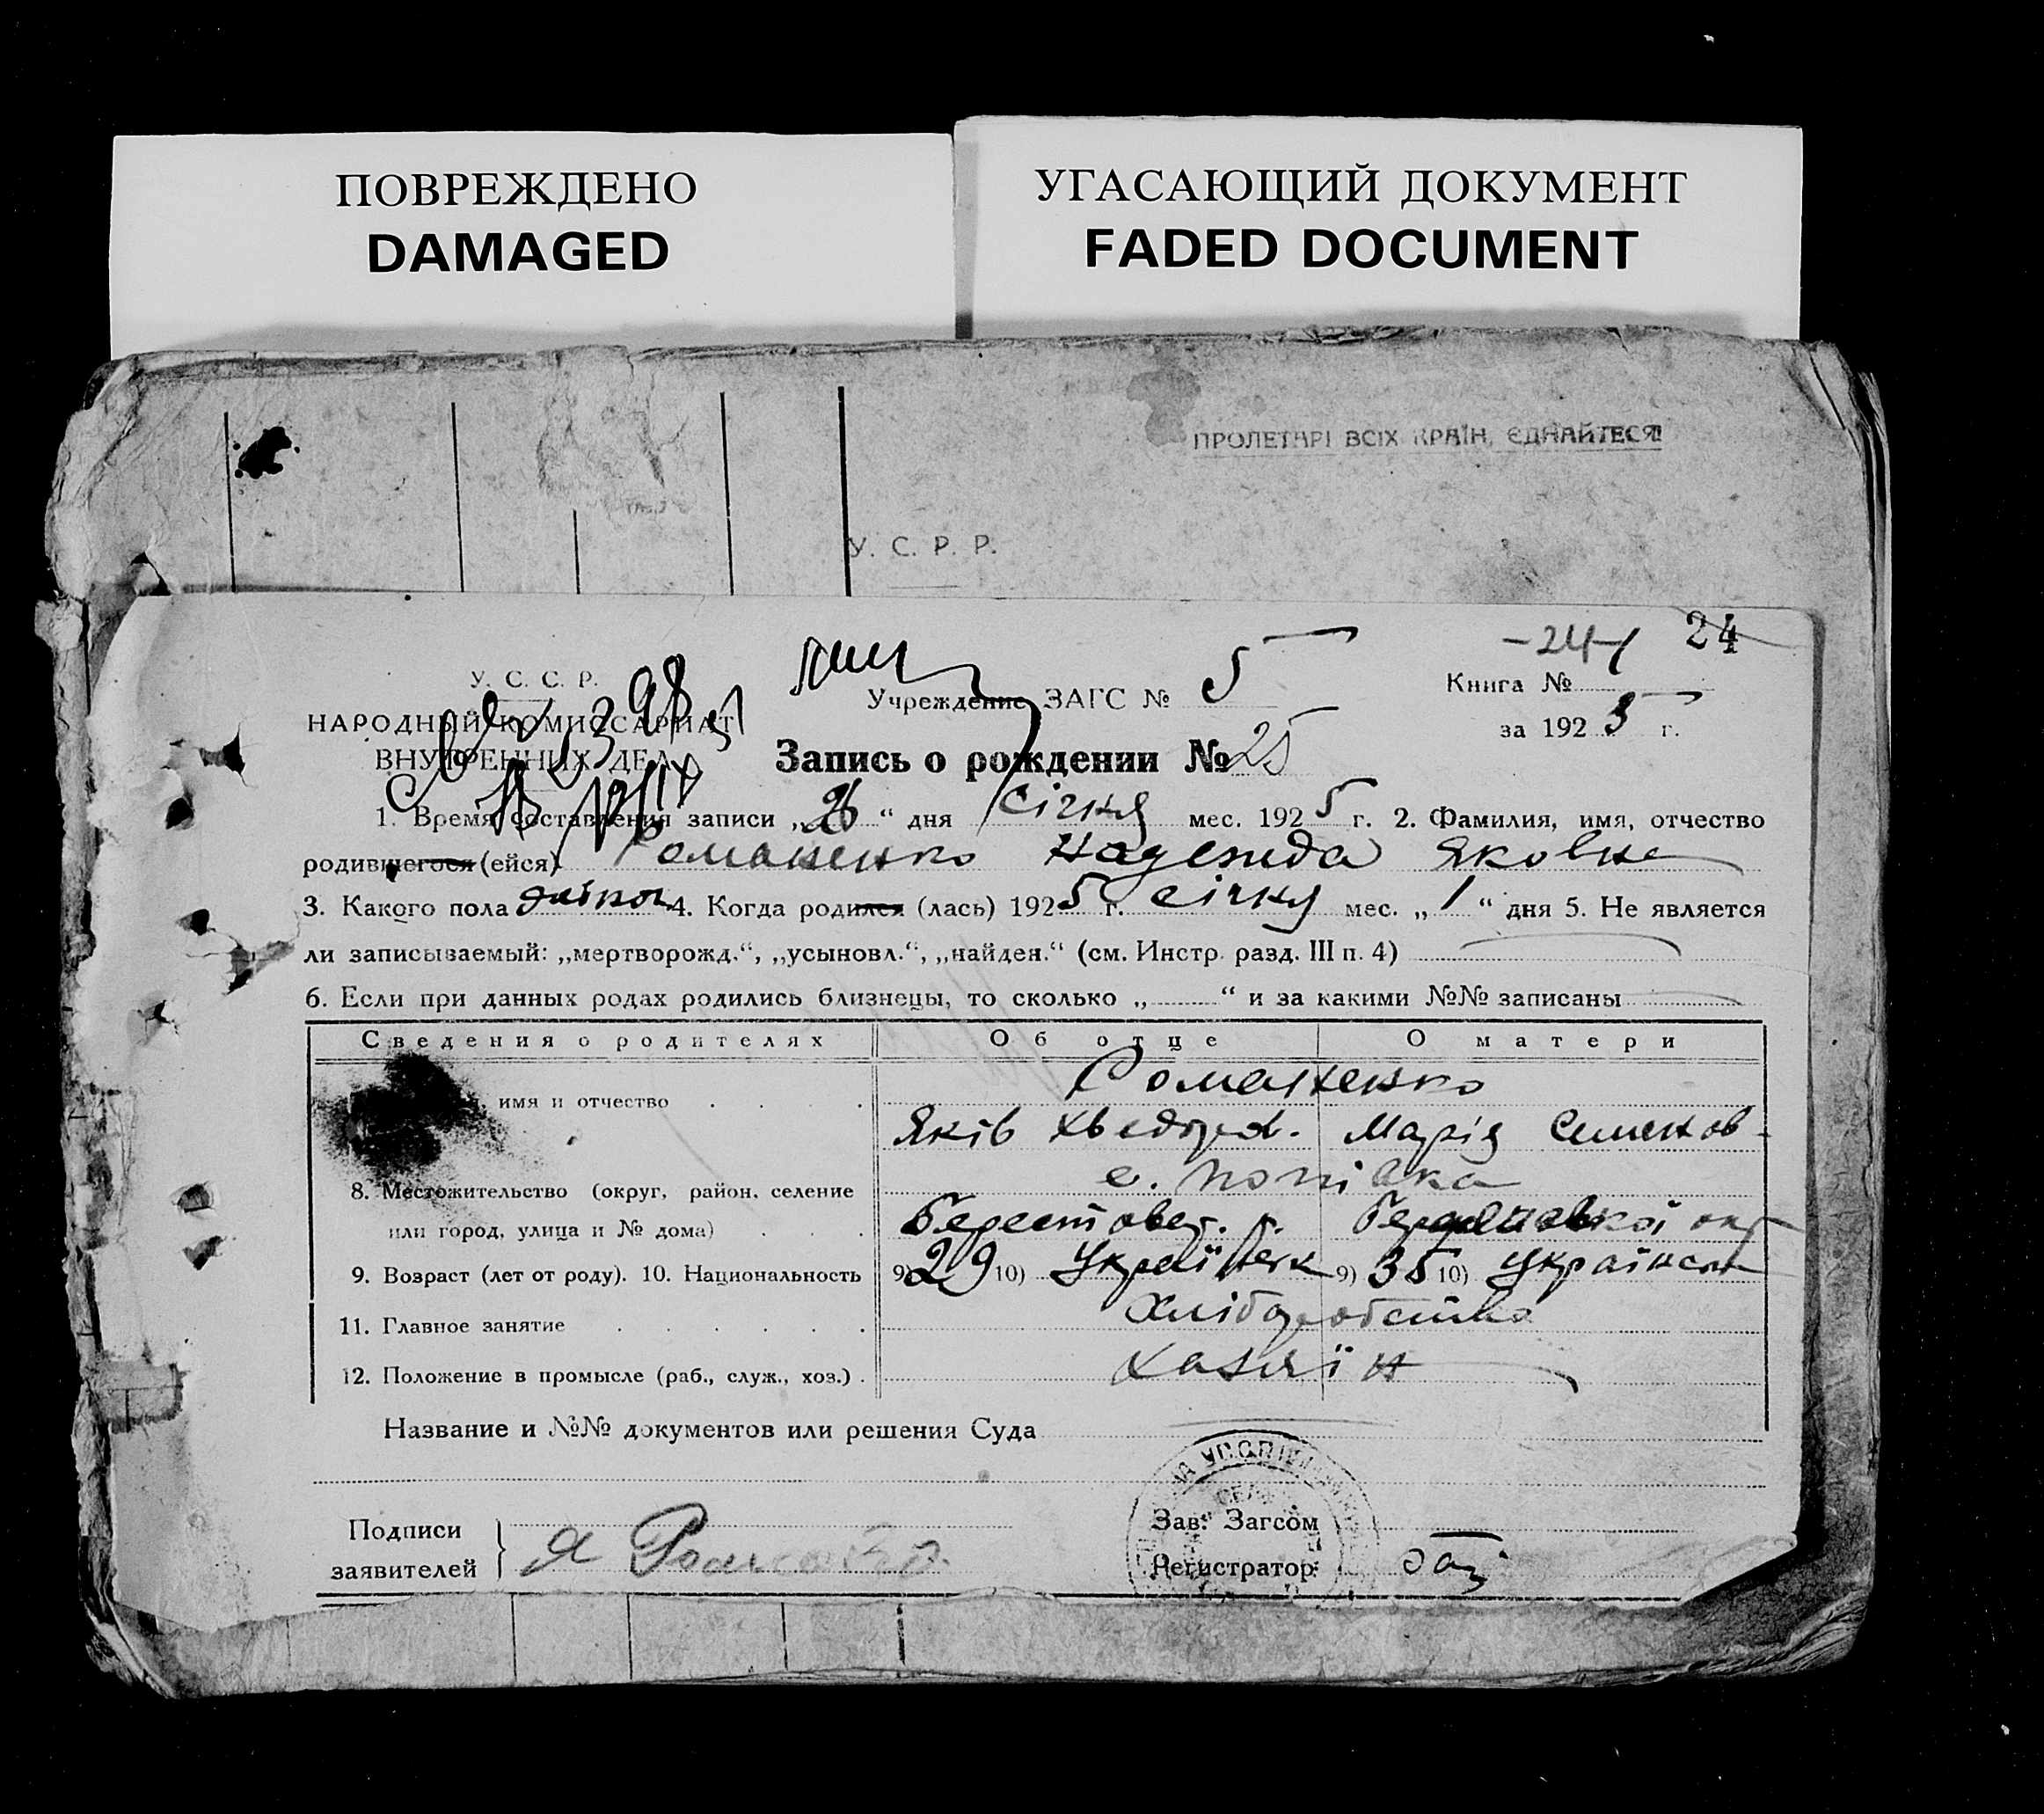 ПОВРЕЖДЕНО
DAMAGED
УГАСАЮЩИЙ ДОКУМЕНТ
FADED DOCUMENT
ПРОЛЕТАРІ ВСІХ КРАЇН, ЄДНАЙТЕСЯ!
У. С. Р. Р.
-24-
24
У. С. С. Р.
Учреждение ЗАГС № 5
Книга №
НАРОДНЫЙ КОМИССАРИАТ
за 1925 г.
ВНУТРЕННИХ ДЕЛ
Запись о рождении № 25
1. Время составления записи „26“ дня січня мес. 1925 г. 2. Фамилия, имя, отчество
родившегося (ейся) Романенко Надежда Яковне
3. Какого пола жіноч 4. Когда родился (лась) 1925 г. січня мес. „1“ дня 5. Не является
ли записываемый: „мертворожд.“, „усыновл.“, „найден.“ (см. Инстр. разд. III п. 4)
6. Если при данных родах родились близнецы, то сколько „ “ и за какими №№ записаны
Сведения о родителях Об отце О матери
Романенко
имя и отчество
Яків Хведоров. Марія Семенов-
с. Попівка
8. Местожительство (округ, район, селение
или город, улица и № дома) Берестовец. р. Бердянської окр
9. Возраст (лет от роду). 10. Национальность 9) 29 10) Українск 9) 35 10) Українськ
11. Главное занятие Хліборобство
12. Положение в промысле (раб., служ., хоз.) Хазяїн
Название и №№ документов или решения Суда
Подписи
заявителей
Я Романенко
Зав. Загсом
Регистратор: